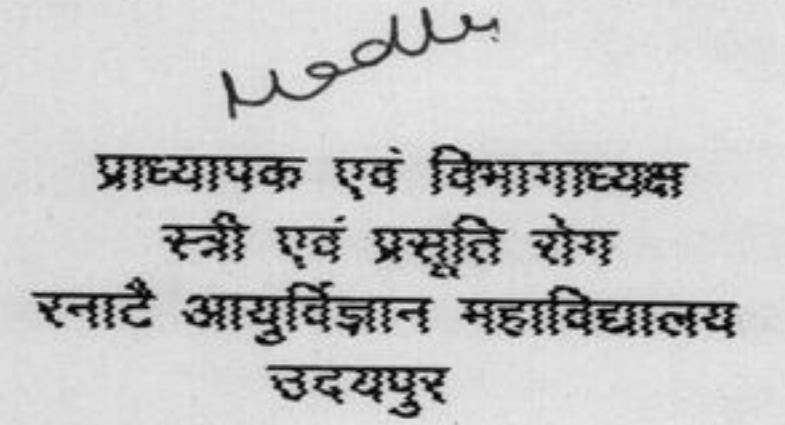 प्राध्यापक एवं विभागाध्यक्ष
स्त्री एवं प्रसूति रोग
रनाटै आयुर्विज्ञान महाविद्यालय
उदयपुर